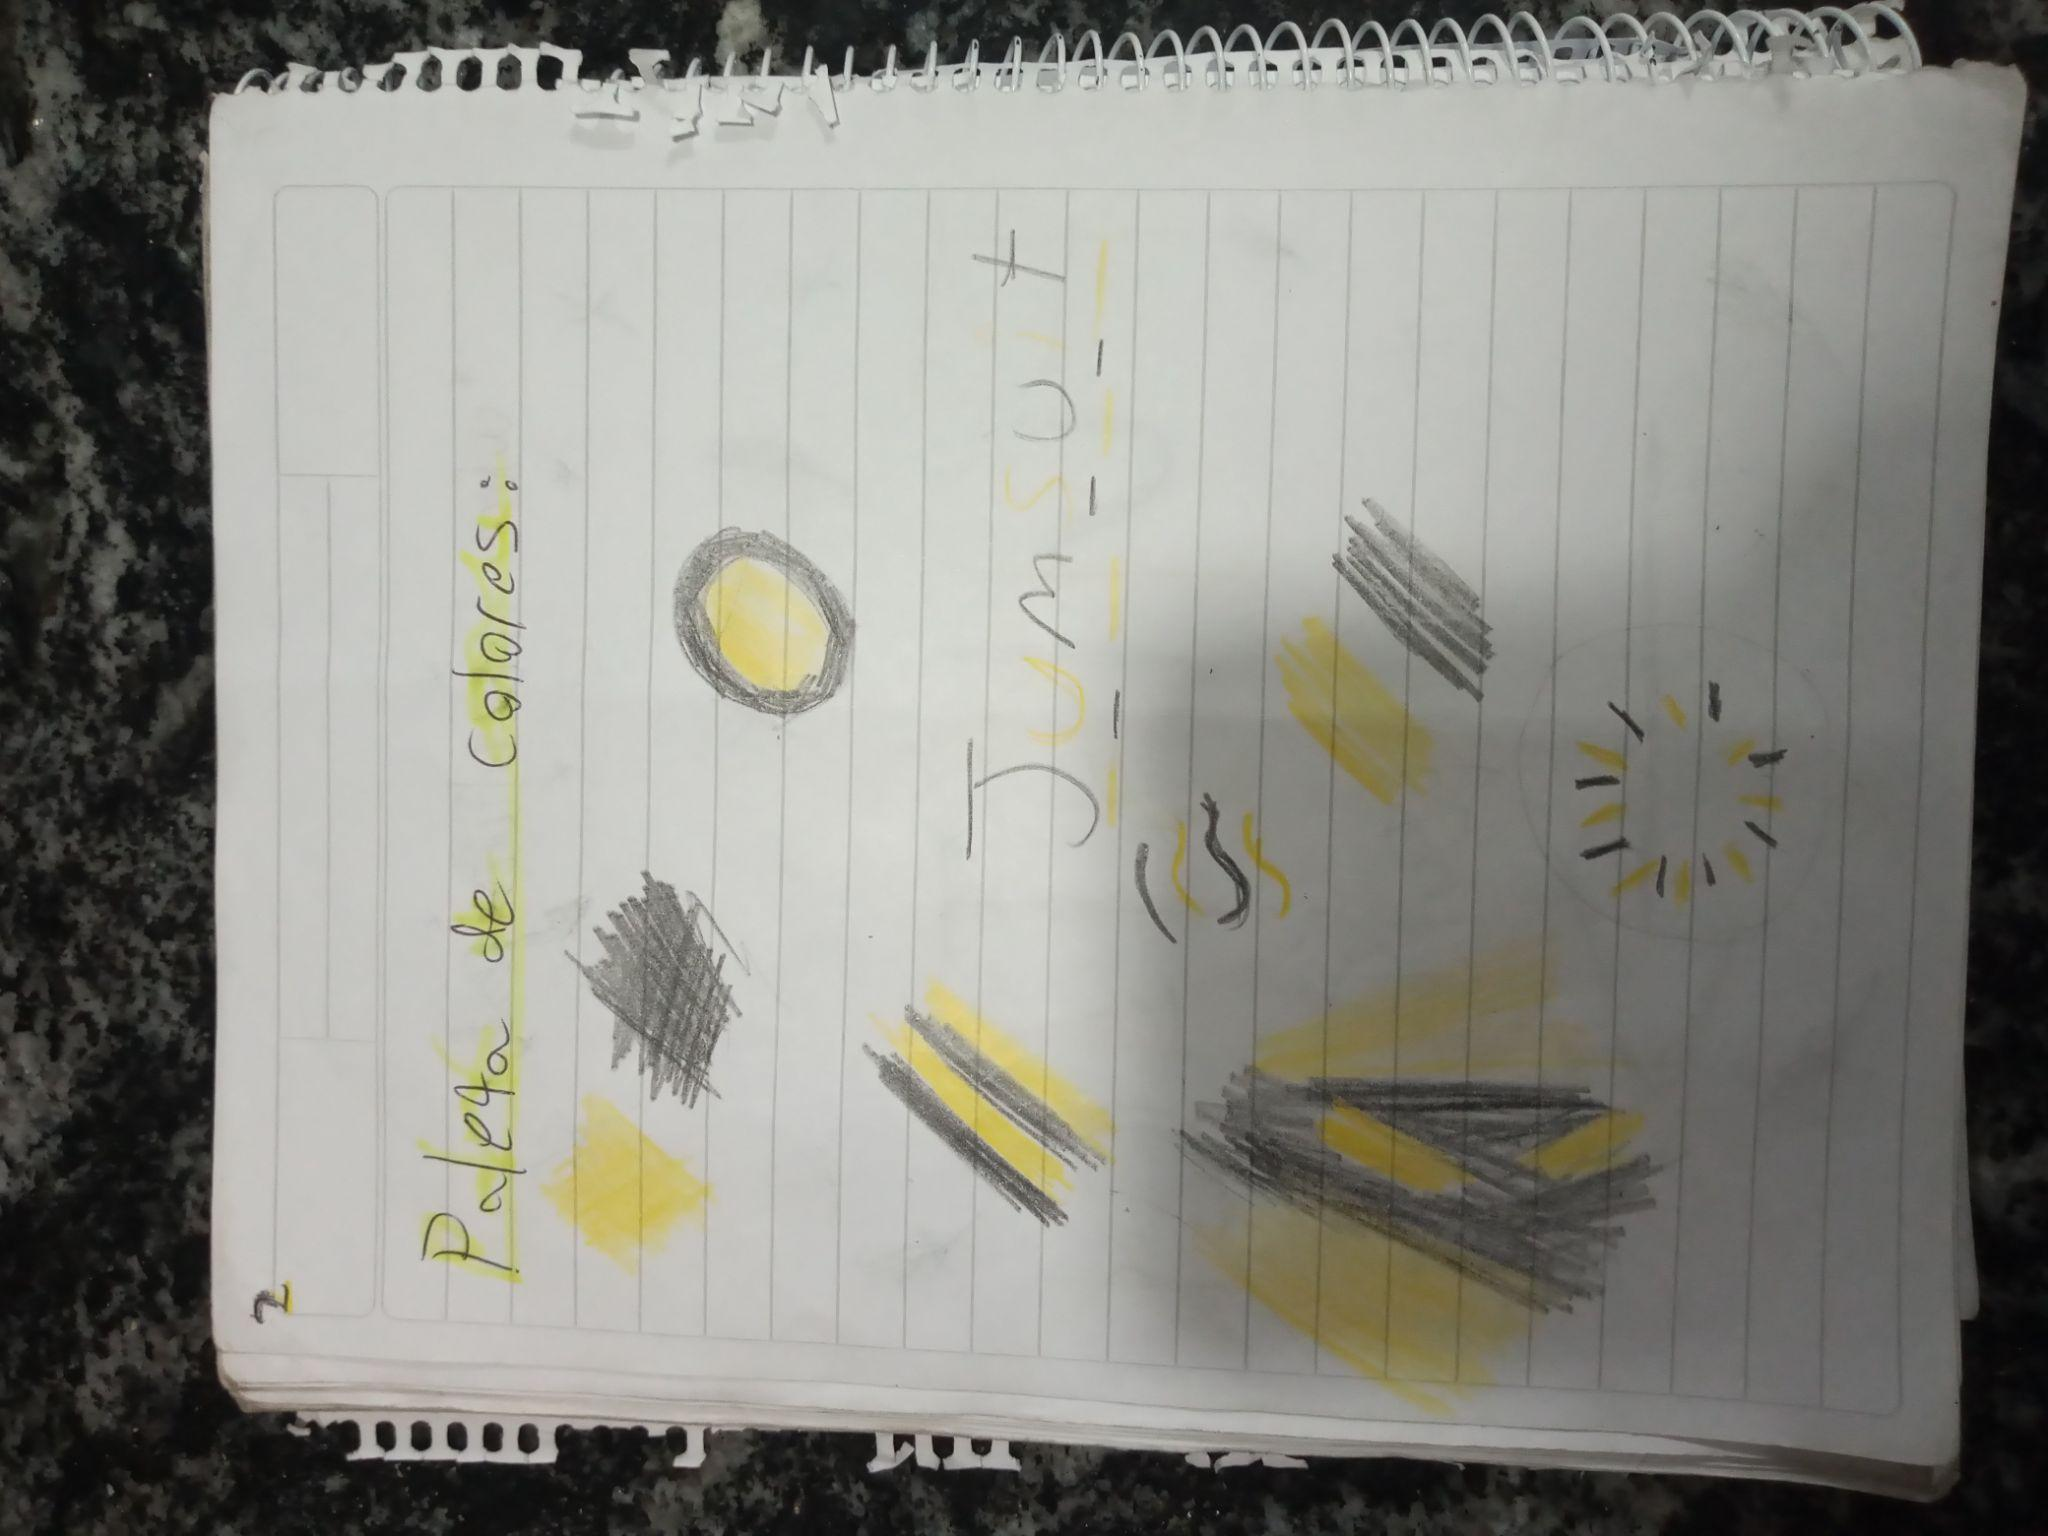 2
Paleta de colores:
Jumsuit